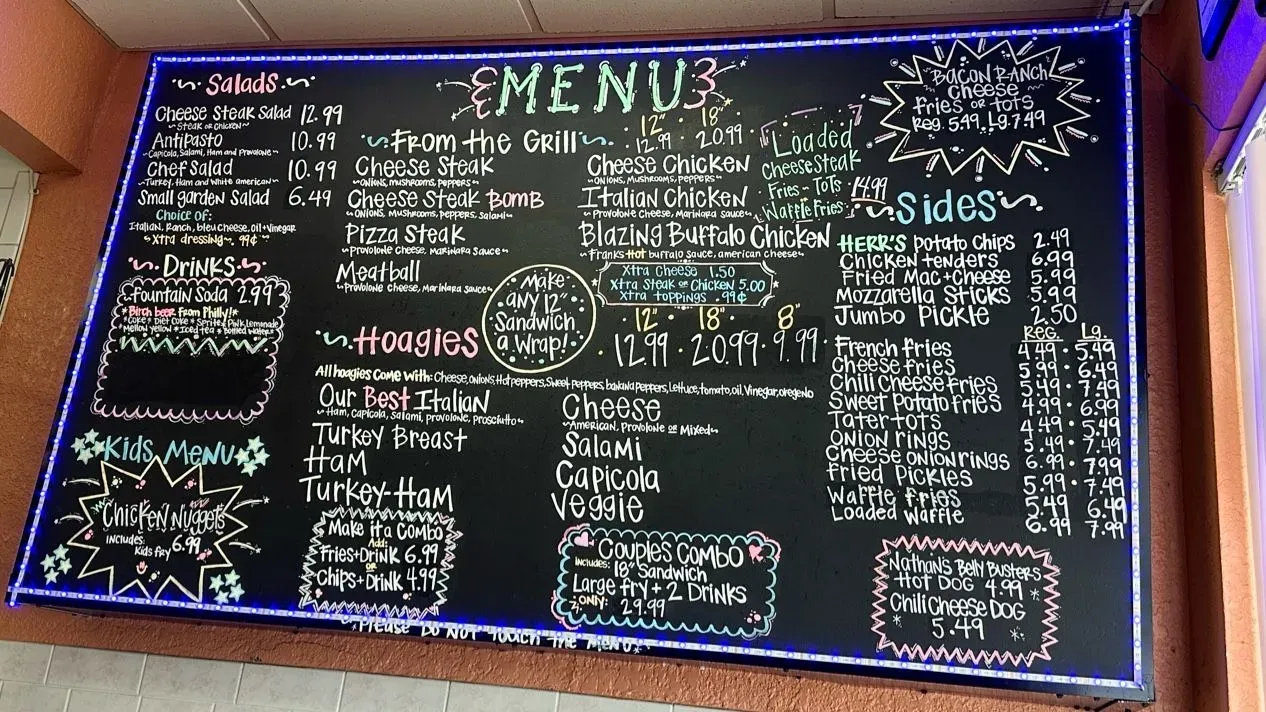 Salads
Cheese Steak Salad 12.99
~Steak or Chicken~
Antipasto 10.99
~Capicola, Salami, Ham and Provolone~
Chef Salad 10.99
~Turkey, Ham and White american~
Small garden Salad 6.49
Choice of:
Italian, Ranch, bleu Cheese, oil+Vinegar
~Xtra dressing~ .99¢
Drinks
Fountain Soda 2.99
*Birch beer From Philly!*
*Coke* Diet Coke * Sprite* Pink Lemonade
*Mellow yellow *Iced tea * Bottled Water*
Kids Menu
Chicken Nuggets
6.99
includes:
Kids fry
MENU
From the Grill
12" 18"
12.99 20.99
Cheese Steak
~Onions, mushrooms, peppers~
Cheese Steak Bomb
~Onions, Mushrooms, peppers, salami~
Pizza Steak
~Provolone Cheese, Marinara Sauce~
Meatball
~Provolone Cheese, Marinara sauce~
Cheese Chicken
~Onions, Mushrooms, peppers~
Italian Chicken
~Provolone Cheese, Marinara sauce~
Blazing Buffalo Chicken
~Franks Hot buffalo Sauce, american cheese~
Xtra Cheese 1.50
Xtra Steak or Chicken 5.00
Xtra toppings .99¢
Make
any 12"
Sandwich
a Wrap!
Loaded
Cheese Steak
Fries - Tots
Waffle Fries
14.99
Hoagies
12" 18" 8"
12.99 20.99 9.99
All hoagies Come With: Cheese, onions, Hot peppers, Sweet peppers, banana peppers, Lettuce, tomato, oil, Vinegar, oregeno
Our Best Italian
~Ham, capicola, salami, provolone, prosciutto~
Turkey Breast
Ham
Turkey-Ham
Cheese
~American, Provolone or Mixed~
Salami
Capicola
Veggie
Make it a Combo
Add:
Fries+Drink 6.99
or
Chips+Drink 4.99
Couples Combo
includes: 18" Sandwich
Large fry + 2 Drinks
Only: 29.99
Bacon Ranch
Cheese
fries or tots
Reg. 5.49 Lg. 7.49
Sides
HERR'S Potato Chips 2.49
Chicken tenders 6.99
Fried Mac+Cheese 5.99
Mozzarella Sticks 5.99
Jumbo Pickle 2.50
Reg. Lg.
French fries 4.49 5.49
Cheese fries 5.99 6.49
Chili Cheese fries 5.49 7.49
Sweet Potato fries 4.99 6.99
Tater tots 4.49 5.49
Onion rings 5.49 7.49
Cheese onion rings 6.99 7.99
Fried Pickles 5.99 7.49
Waffle fries 5.49 6.49
Loaded Waffle 6.99 7.99
Nathan's Belly Busters
Hot Dog 4.99
Chili Cheese Dog
5.49
*Please Do Not touch the Menu*